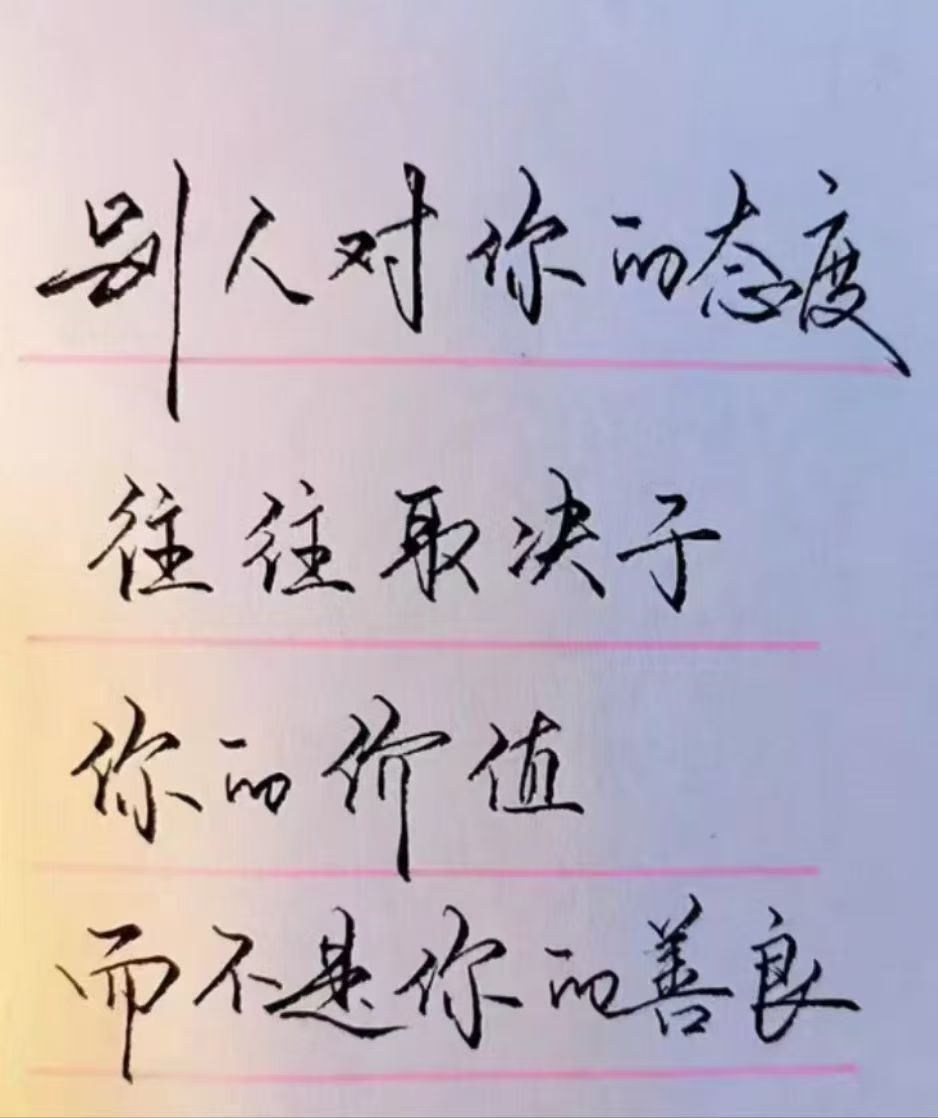 别人对你的态度
往往取决于
你的价值
而不是你的善良